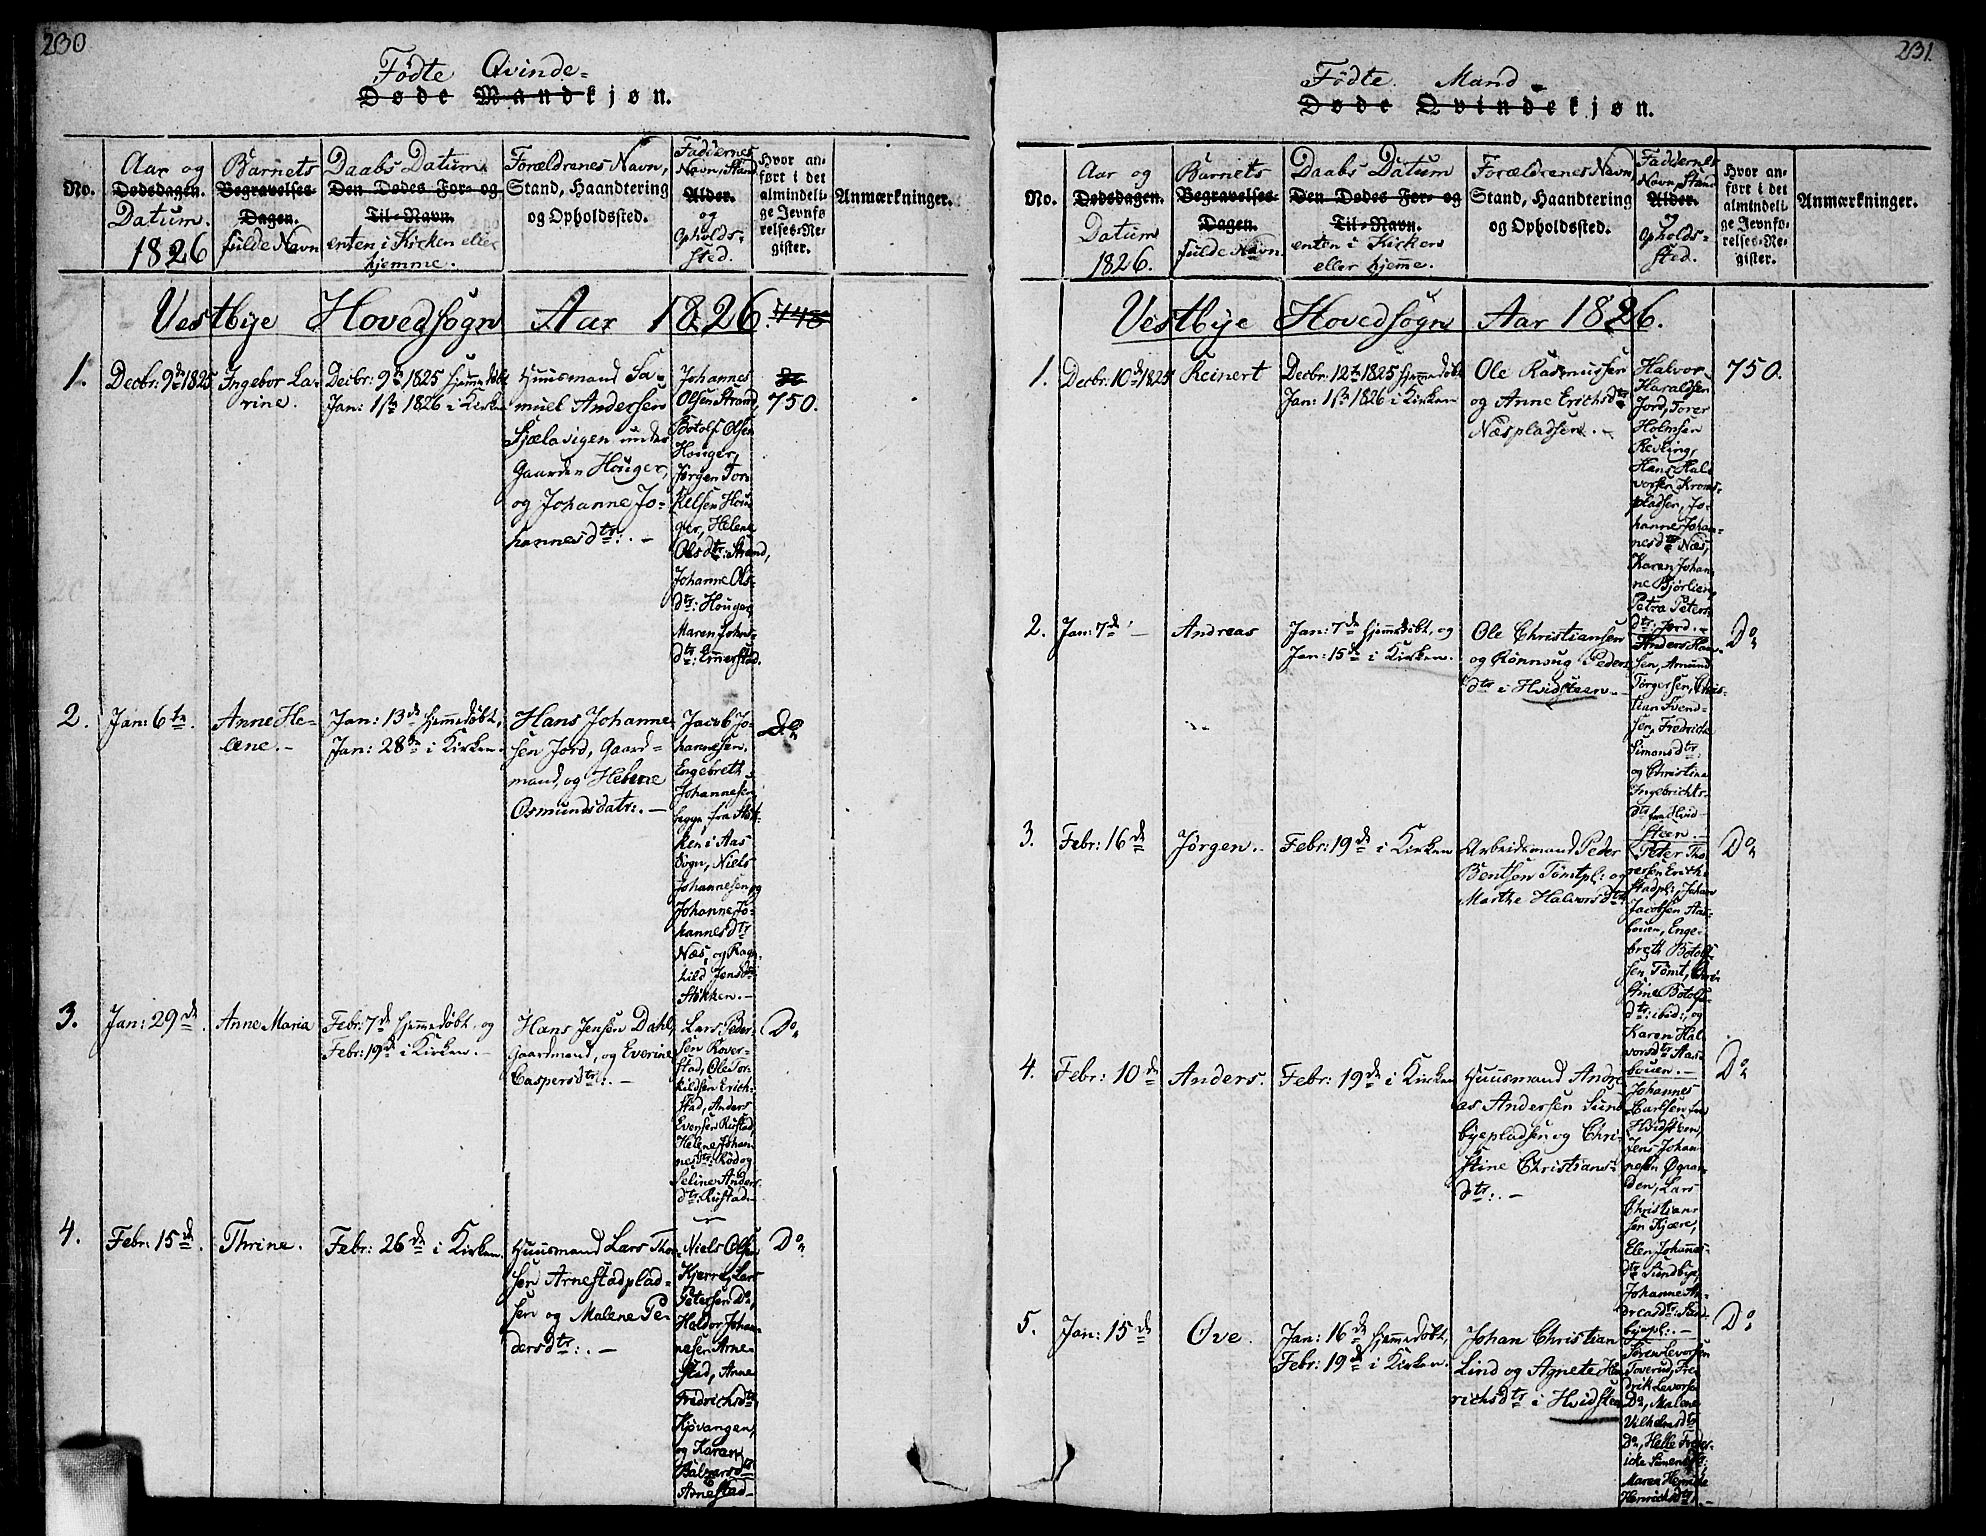 230
Fødte Qvinde-
Døde Mandkjøn.
No.
Aar og
Dødsdagen.
Datum.
1826
Barnets
Begravelses-
Dagen.
fulde Navn
Daabs Datum
Den Dødes For- og
Til-Navn.
enten i Kirken eller
hjemme.
Forældrenes Navn,
Stand, Haandtering
og Opholdssted.
Faddernes
Navn, Stand
Alder.
og
Opholds-
sted.
Hvor an-
ført i det
almindeli-
ge Jevnfø-
relses-Re-
gister.
Anmærkninger.
Vestbye Hovedsogn Aar 1826.
1.
Decbr: 9de 1825
Ingebor La-
rine.
Decbr: 9de 1825 hjemmedøbt
Jan: 1ste 1826 i Kirken
Huusmand Sa-
muel Andersen
Sjælavigen under
Gaarden Houger,
og Johanne Jo-
hannesdtr: . –
Johannes
Olsen Strand,
Botolf Olsen
Houger,
Jørgen Tor-
kelsen Hou-
ger, Helene
Olsdtr: Strand,
Johanne Ols-
dtr: Houger
Maren Johns-
dtr: Emmerstad.
750.
2.
Jan: 6te .
Anne He-
lene. –
Jan: 13de hjemmedøbt,
Jan: 28de i Kirken.
Hans Johanne-
sen Jord, Gaard-
mand, og Helene
Osmundsdatr: . –
Jacob Jo-
hannesen,
Engebreth
Johannesen,
begge fra Støk-
ken i Aas
Sogn, Niels
Johannesen og
Johanne Jo-
hannesdtr
Næs, og Ragn-
hild Jensdtr
Støkken. –
Do
3.
Jan: 29de .
Anne Maria
Febr: 7de hjemmedøbt, og
Febr: 19de i Kirken. –
Hans Jensen Dahl,
Gaardmand, og Everine
Caspersdtr: . –
Lars Peder-
sen Rover-
stad, Ole Tor-
kildsen Erich-
stad, Anders
Evensen Rustad,
Helene Johan-
nesdtr: Rød og
Seline Anders-
dtr: Rustad –
Do
4.
Febr: 15de .
Thrine.
Febr: 26de i Kirken.
Huusmand Lars Thor-
sen Arnestadplad-
sen og Malene Pe-
dersdtr: . –
Niels Olsen
Kjerre, Lars
Petersen Do,
Haldor Johan-
nesen Arne-
stad, Anne
Fredrichsdtr
Kjøvangen,
og Karan
Balzersdtr
Arnestad –
Do
231.
Fødte Mand-
Døde Qvindekjøn.
No.
Aar og
Dødsdagen.
Datum
1826.
Barnets
Begravelses-
Dagen.
fulde Navn.
Daabs Datum
Den Dødes For- og
Til-Navn.
enten i Kirken
eller hjemme.
Forældrenes Navn
Stand, Haandtering
og Opholdssted.
Faddernes
Navn, Stand
Alder.
og
Opholds-
sted.
Hvor an-
ført i det
almindeli-
ge Jevnfø-
relses-Re-
gister.
Anmærkninger.
Vestbye Hovedsogn Aar 1826.
1.
Decbr: 10de 1825
Reinert
Decbr: 12te 1825 hjemmedøbt
Jan: 1ste 1826 i Kirken
Ole Rasmussen
og Anne Erichsdtr
Næspladsen. –
Halvor
Haraldsen
Jord, Torer
Holmsen
Revling,
Hans Hal-
vorsen Kroms-
pladsen, Jo-
hanne Johan-
nesdtr Næs,
Karen Johan-
ne Bjørlien,
Petra Peters-
dtr: Jord. –
750.
2.
Jan: 7de –
Andreas
Jan: 7de hjemmedøbt, og
Jan: 15de i Kirken.
Ole Christiansen
og Rønnoug Peders-
dtr i Hvidsteen. –
Anders Han-
sen, Amund
Torgersen, Chris-
tian Svend-
sen, Fredriche
Simonsdtr:
og Christine
Ingebrichts-
dtr fra Hvid-
steen. –
Do
3.
Febr: 16de
Jørgen. –
Febr: 19de i Kirken
Arbeidsmand Peder
Bentsen Tømtpl: og
Marthe Halvorsdtr
Peter Tho-
resen Erik-
stadpl:, Johan
Jacobsen Aas-
bouen, Enge-
breth Botolf-
sen Tømt, Chri-
stine Botolfs-
dtr: ibid:, og
Karen Hal-
vorsdtr Aas-
bouen. –
Do
4.
Febr: 10de
Anders.
Febr: 19de i Kirken
Huusmand Andre-
as Andersen Sund-
byepladsen og Chri-
stine Christians-
dtr: . –
Johannes
Carlsen fra
Hvidsteen,
Jens Johan-
nesen Øgran-
den, Lars
Christian-
sen Kjære,
Elen Johannes-
dtr Sundbye,
Johanne An-
dreasdtr: Sund-
byepl: . –
Do
5.
Jan: 15de
Ove.
Jan: 16de hjemmedøbt,
Febr: 19de i Kirken.
Johan Christian
Lind og Agnete Hen-
richsdtr i Hvidsteen
Søren Levorsen
Toverud, Fre-
drik Levorsen
Do, Malene
Vilhelmsdtr
Do, Helle Frede-
ricke Simensdtr,
Maren Henricke
Henrichsdtr, –
Do